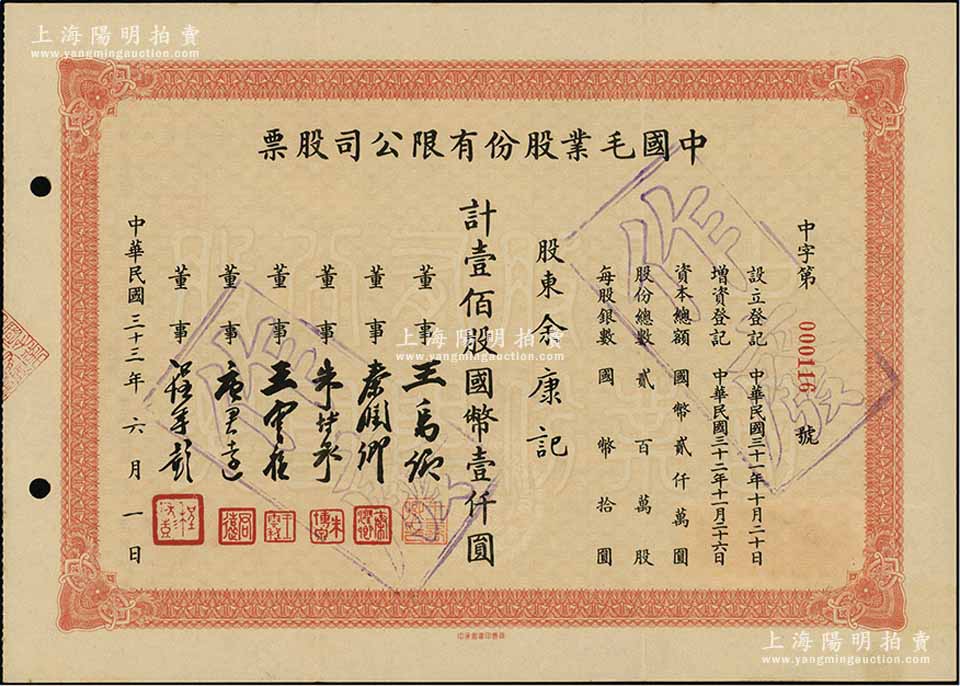 上海陽明拍賣
www.yangmingauction.com
中國毛業股份有限公司股票
中字第 000116 號
設立登記 中華民國三十一年十月二十日
增資登記 中華民國三十二年十一月二十六日
資本總額 國幣貳仟萬圓
股份總數 貳百萬股
每股銀數 國幣拾圓
股東余康記
計壹佰股國幣壹仟圓
董事 王禹卿
董事
董事 朱
董事 王
董事 唐君遠
董事 程年彭
中華民國三十三年六月一日
作
上海陽明拍賣
www.yangmingauction.com
上海陽明拍賣
www.yangmingauction.com